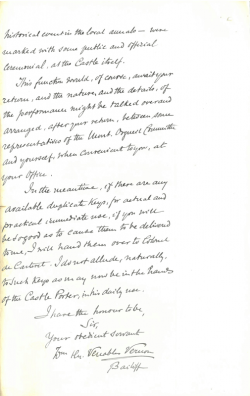 historical event in the local annals — were
marked with some public and official
Ceremonial, at the Castle itself.
This function would, of course, await your
return, and the nature, and the details, of
the performance might be talked over and
arranged, after your return, between some
representatives of the Mont. Orgueil Committee
and yourself, when convenient to you, at
your Office.
In the meantime, if there are any
available duplicate Keys, for actual and
practical immediate use, if you will
be so good as to cause them to be delivered
to me, I will hand them over to Colonel
de Carteret. I do not allude, naturally,
to such Keys as may now be in the hands
of the Castle Porter, in his daily use.
I have the honour to be,
Sir,
Your obedient servant
Wm. H. Venables Vernon
Bailiff